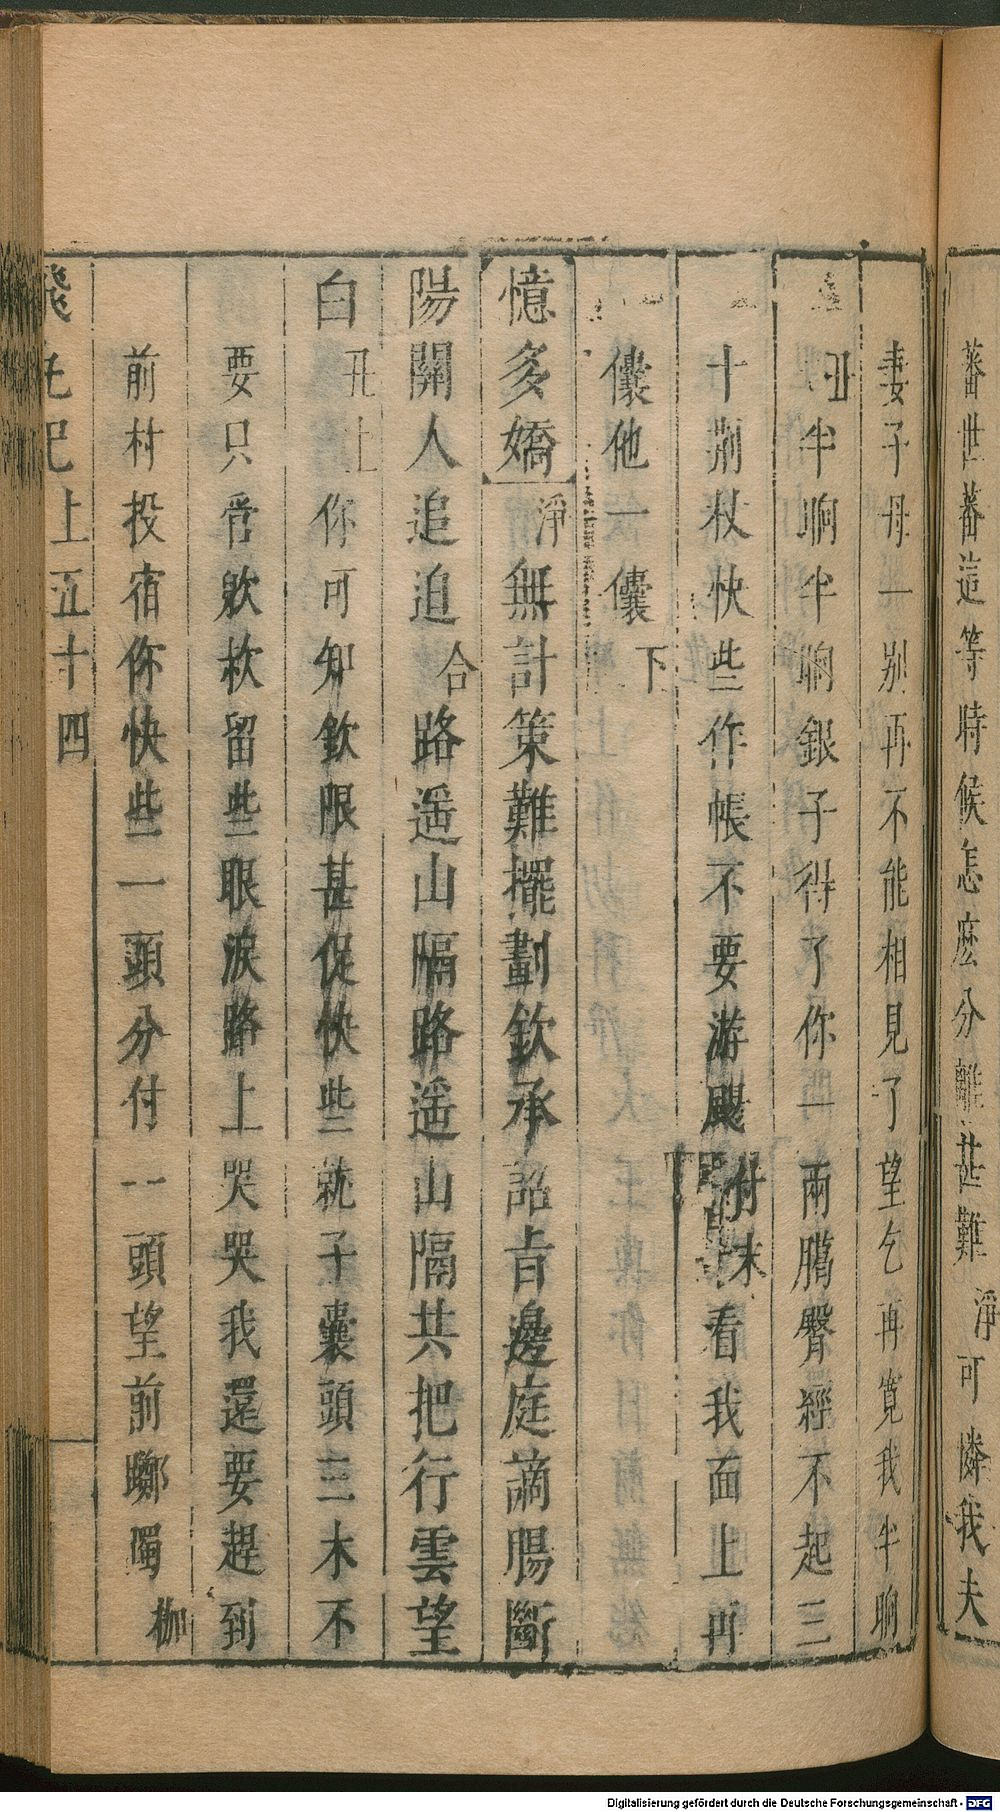 蕃世蕃這等時候怎麽分離甚難淨可憐我夫
妻子母一别再不能相見了望乞再寬我半晌
丑半晌半晌銀子得了你一兩臋臀經不起三
十荆杖快些作帳不要游颺付末看我面上再
儾他一儾下
憶多嬌淨無計策難擺劃欽承詔旨邊庭謫腸斷
陽關人追迫合路遥山隔路遥山隔共把行雲望
白丑上你可知欽限甚促快些就子囊頭三木不
要只管欷枚留些眼淚路上哭哭我還要趕到
前村投宿你快些一頭分付一頭望前躑躅枷
上五十四
Digitalisierung gefördert durch die Deutsche Forschungsgemeinschaft - DFG